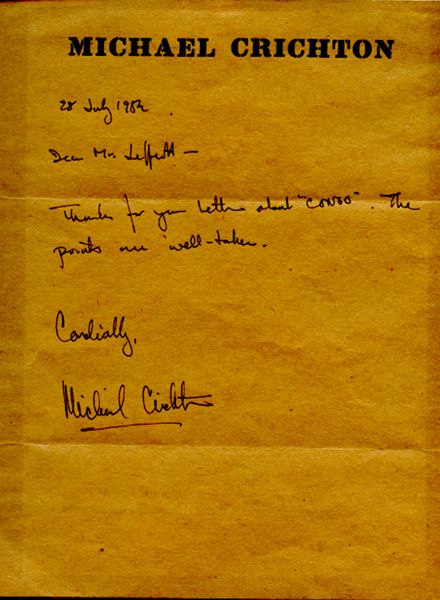 MICHAEL CRICHTON
28 July 1982
Dear Mr.
Thanks for your letter about "CONGO". The
points are well-taken.
Cordially,
Michael Crichton